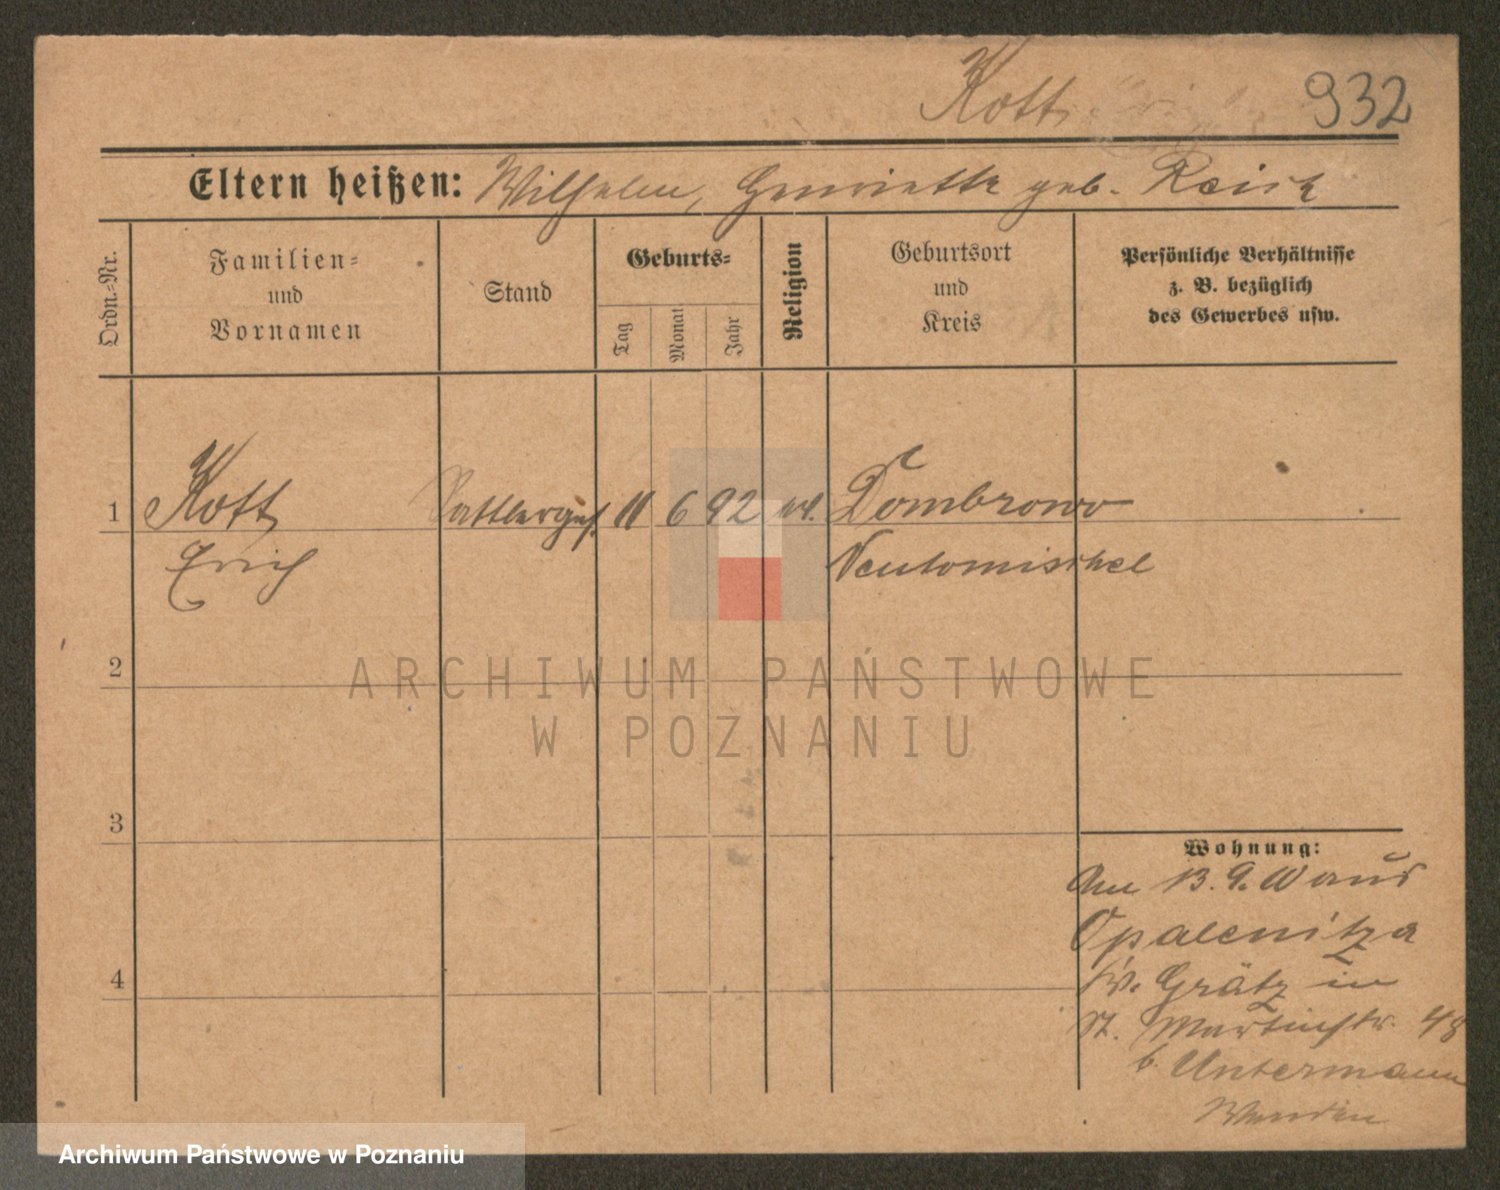 Kott 932
Eltern heißen: Wilhelm, Henriette geb.
Ordn.-Nr.
Familien-
und
Vornamen
Stand
Geburts-
Tag
Monat
Jahr
Religion
Geburtsort
und
Kreis
Persönliche Verhältnisse
z. B. bezüglich
des Gewerbes usw.
1 Kott Sattlerges. 11 6 92 Dombrowo
Erich Neutomischel
2
3
4
Wohnung:
Am 13. 9. aus
Opalenitza
Kr. Grätz in
St. Martinstr. 48
b. Untermann
ARCHIWUM PAŃSTWOWE
W POZNANIU
Archiwum Państwowe w Poznaniu